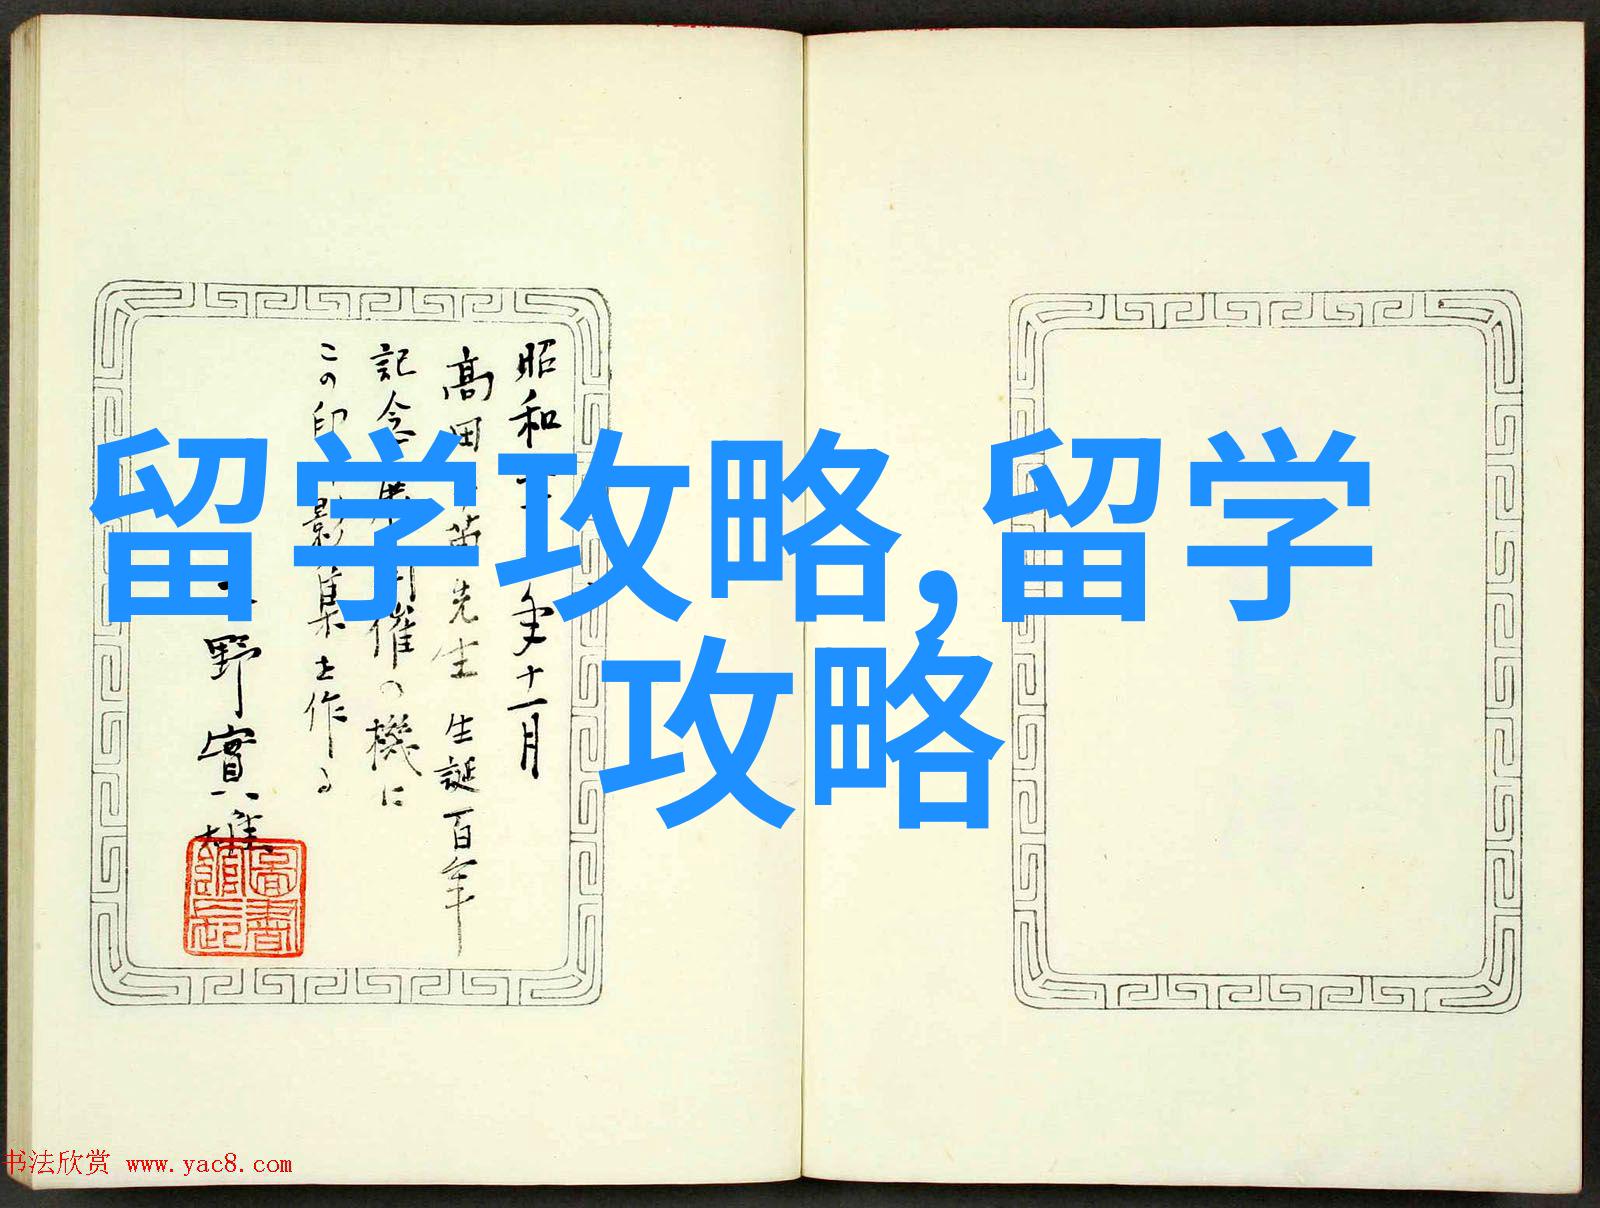 留学攻略,留学
攻略
昭和 年十一月
高田 苗先生 生誕百年
記念展開催の機に
この印影集を作る
野實雄
圖書館長
书法欣赏 www.yac8.com